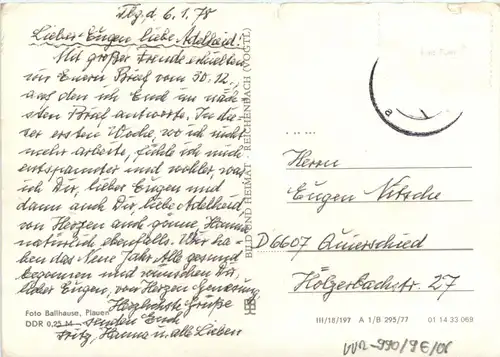 Flg., d. 6.1.78
Lieber Eugen, liebe Adelheid!
Mit großer Freude erhielten
wir Euern Brief vom 30.12.,
aus den ich Euch im näch-
sten Brief antworte. In die-
ser ersten Woche, wo ich nicht
mehr arbeite, fühle ich mich
entspannter und wohler, was
ich Dir, lieber Eugen und
dann auch Dir, liebe Adelheid,
von Herzen auch gönne, Hanna
natürlich ebenfalls. Wir ha-
ben das Neue Jahr alle gesund
begonnen und wünschen Dir,
lieber Eugen, von Herzen Genesung.
Herzlichste Grüße
senden Euch
Fritz, Hanna u. alle Lieben
Foto Ballhause, Plauen
DDR 0,25 M
BILD UND HEIMAT · REICHENBACH (VOGTL)
Herrn
Eugen Nitsche
D 6607 Quierschied
Holzerbachstr. 27
III/18/197 A 1/B 295/77 01 14 33 068
VVR-990/9E/06